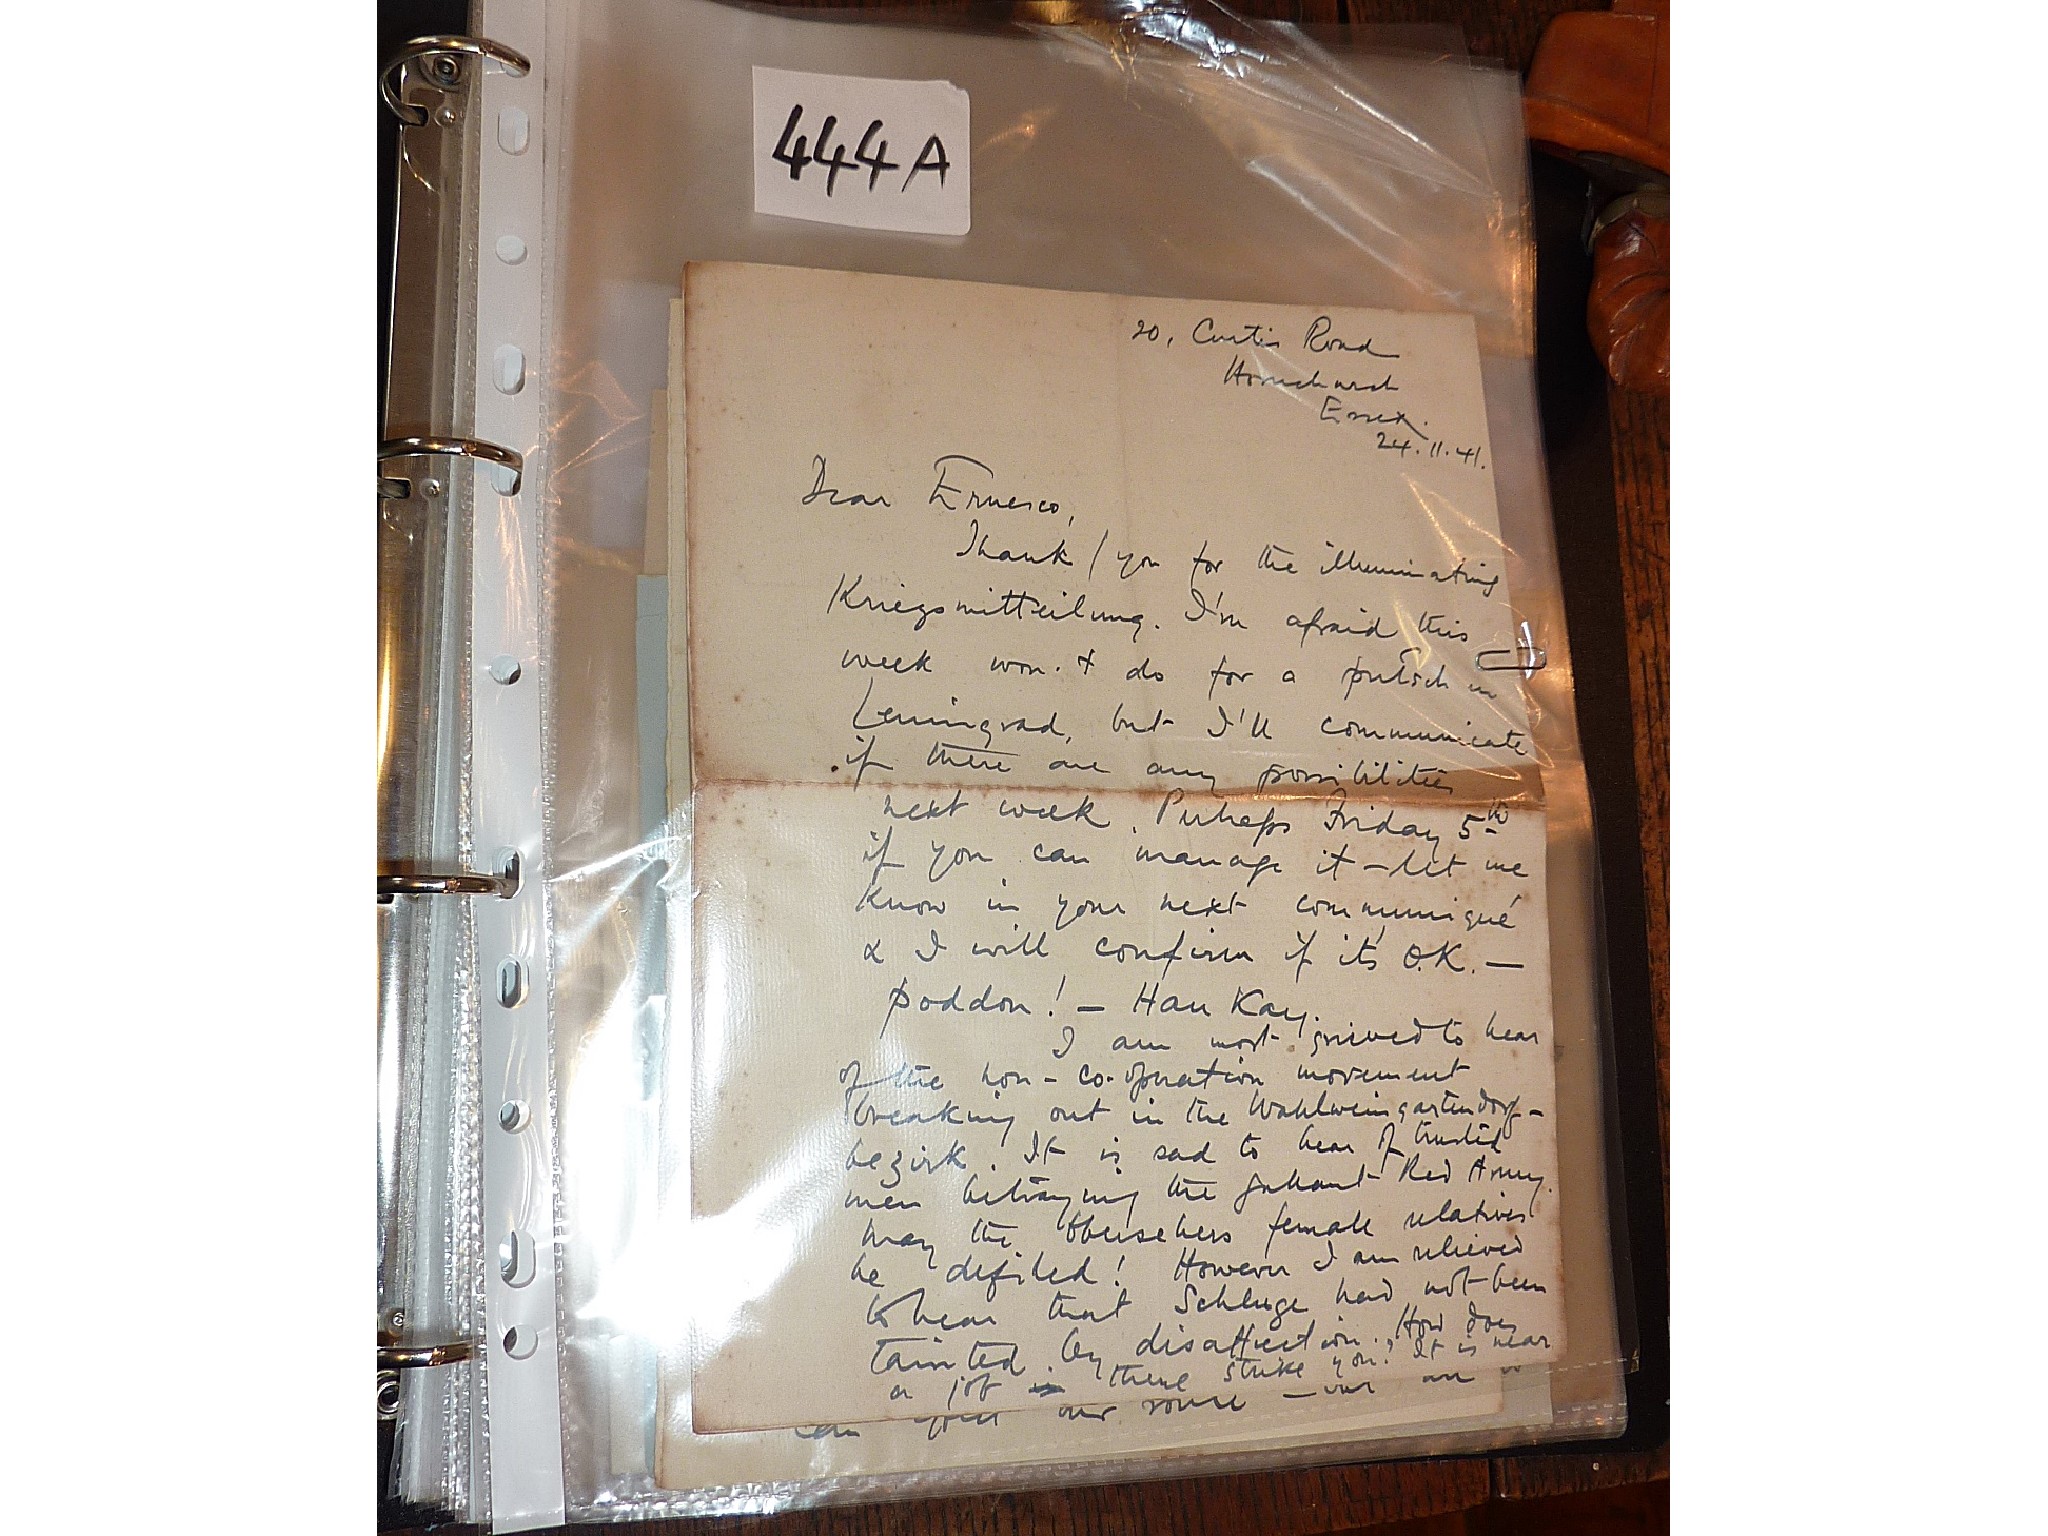 444A
20, Curtis Road
Hornchurch
Essex.
24.11.41.
Dear Ernesco,
Thank / you for the illuminating
Kriegsmitteilung. I'm afraid this
week won't do for a putsch in
Leningrad, but I'll communicate
if there are any possibilities
next week. Perhaps Friday 5th
if you can manage it - let me
know in your next communiqué
& I will confirm if it's O.K. —
poddon! — Han Kay.
I am most grieved to hear
of the non-co-operation movement
breaking out in the Wahlweingartendorf-
bezirk. It is sad to hear of trusted
men betraying the gallant Red Army.
May the female relatives
be defiled! However I am relieved
to hear that Schluge had not been
tainted by disaffection. How does
a job in there strike you? It is near
can our route —